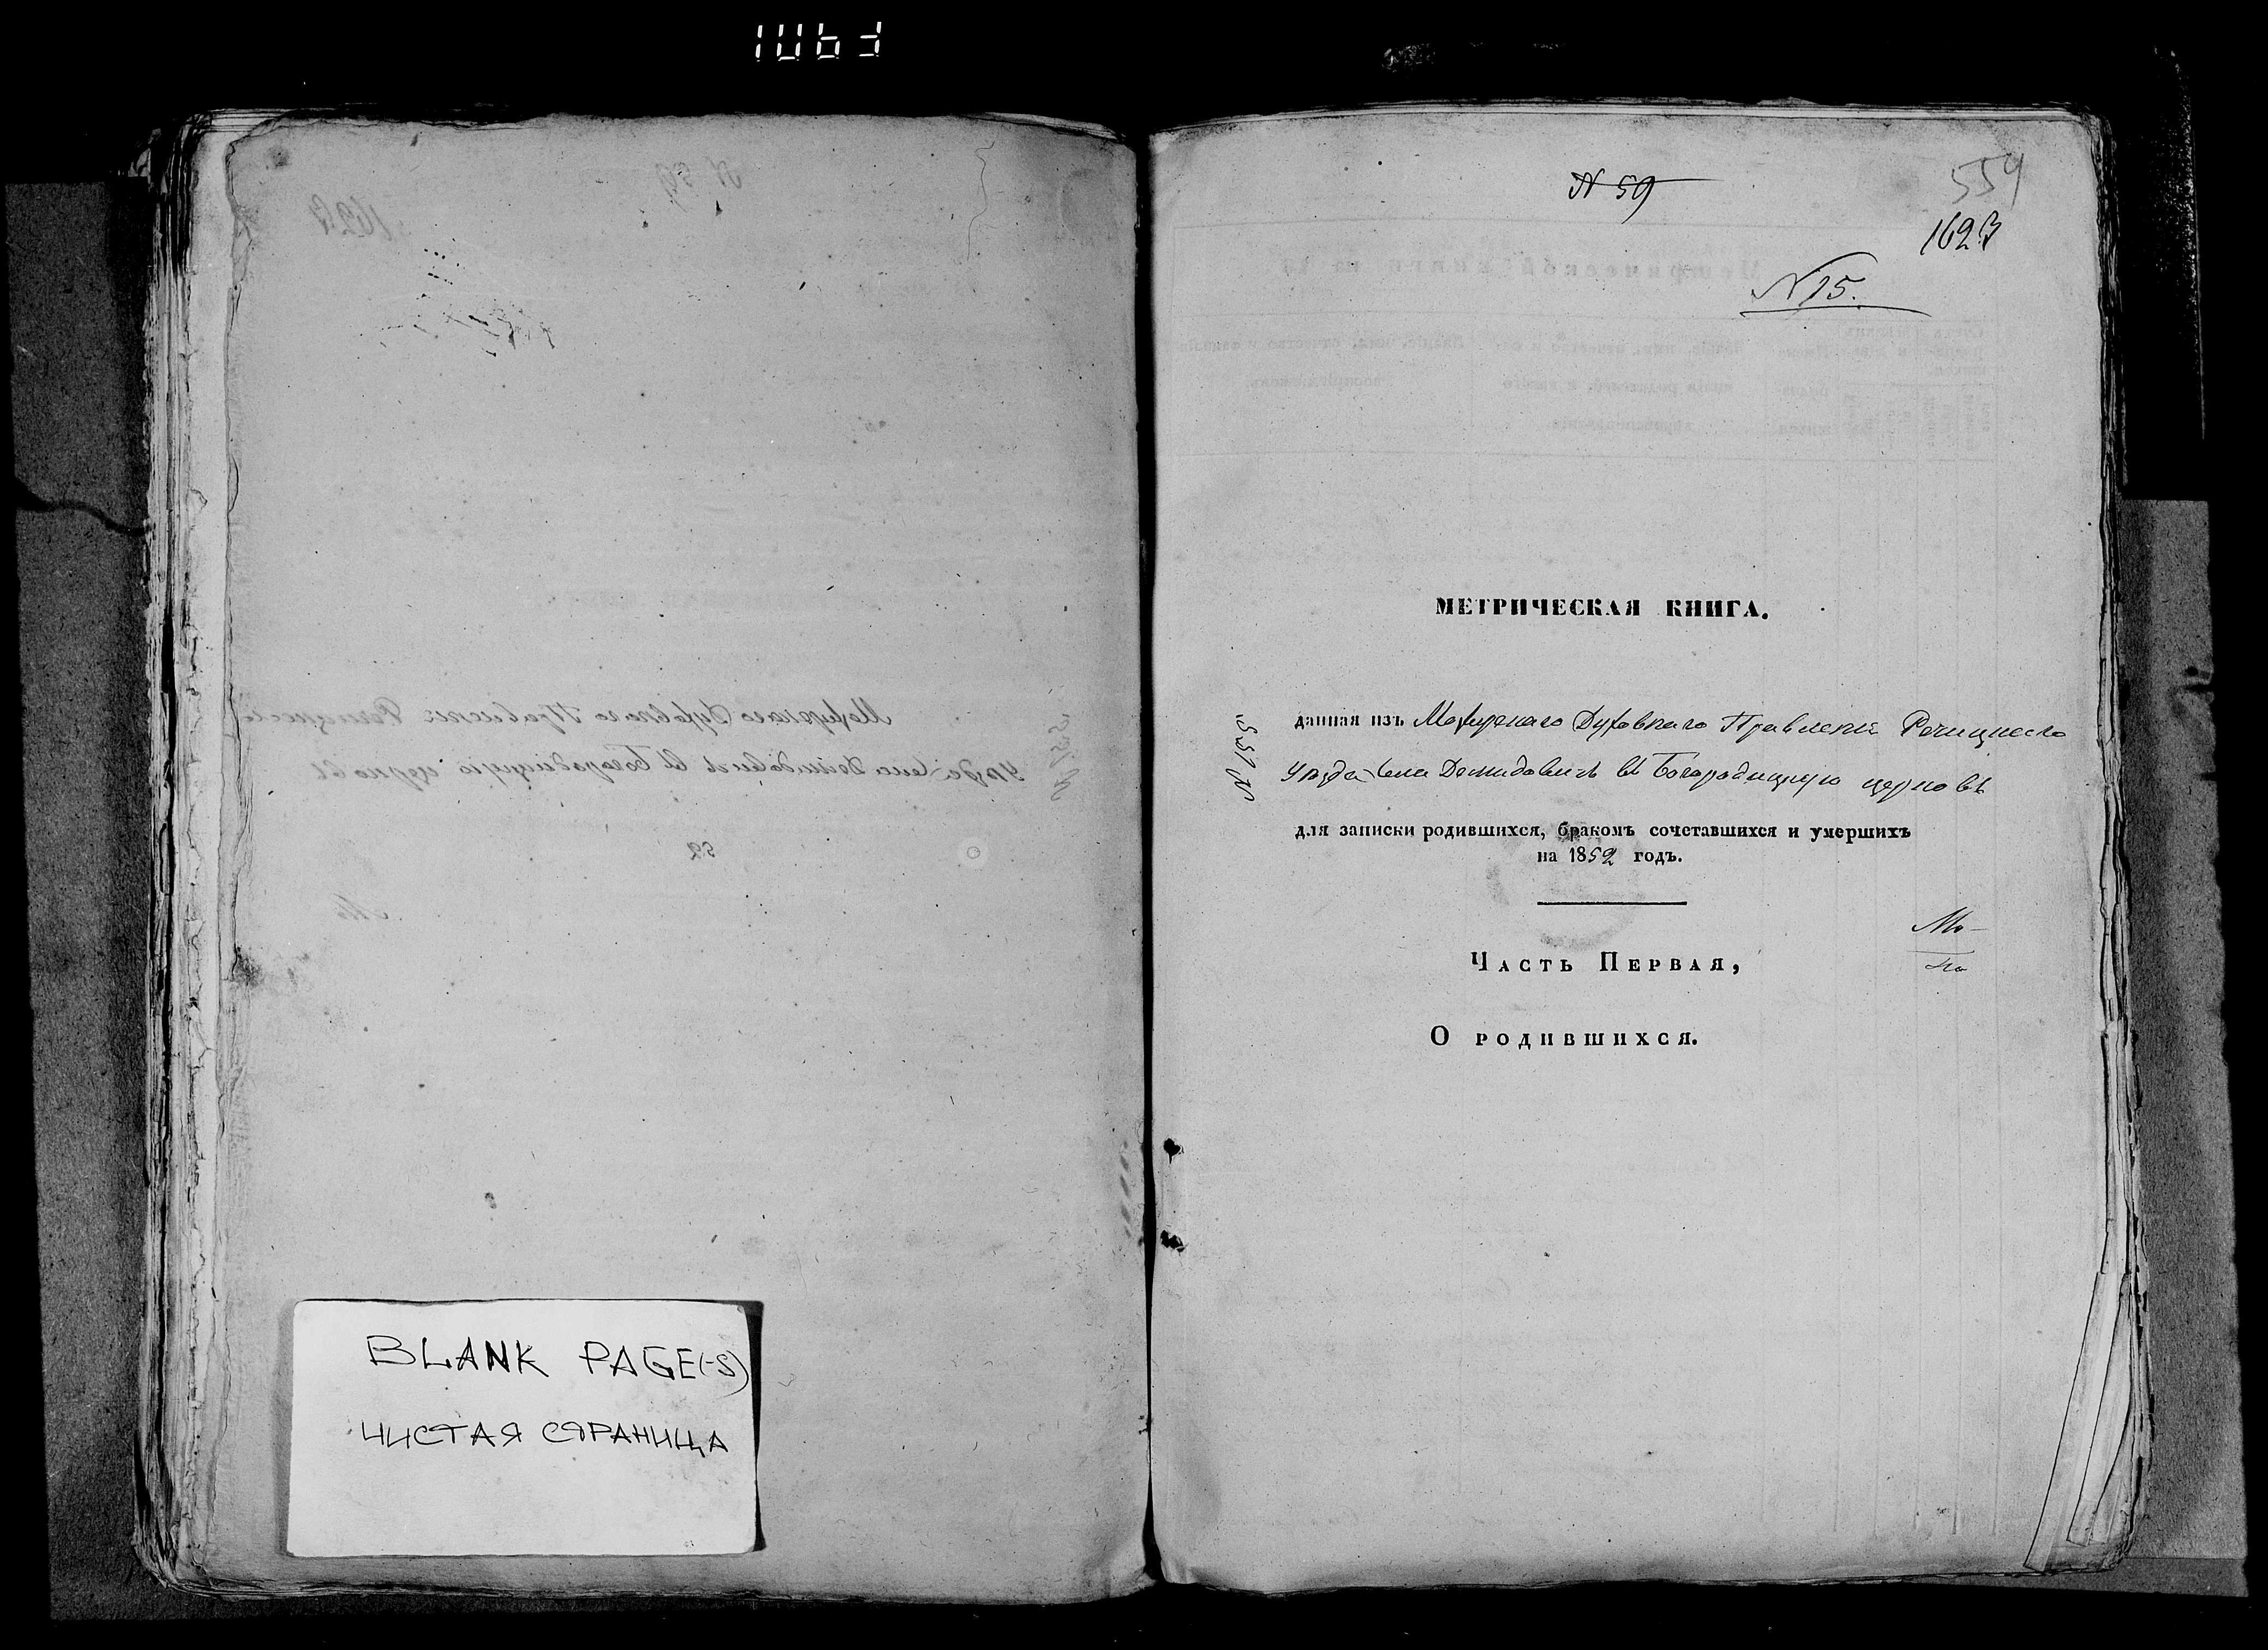 BLANK PAGE(-S)
ЧИСТАЯ СТРАНИЦА
N 59
559
1623
N 15.
МЕТРИЧЕСКАЯ КНИГА.
данная изъ Мозырскаго Духовнаго Правленія Речицкаго
Уѣзда села Демидовичъ въ Богородицкую церковь
для записки родившихся, бракомъ сочетавшихся и умершихъ
на 1852 годъ.
Часть Первая,
О родившихся.